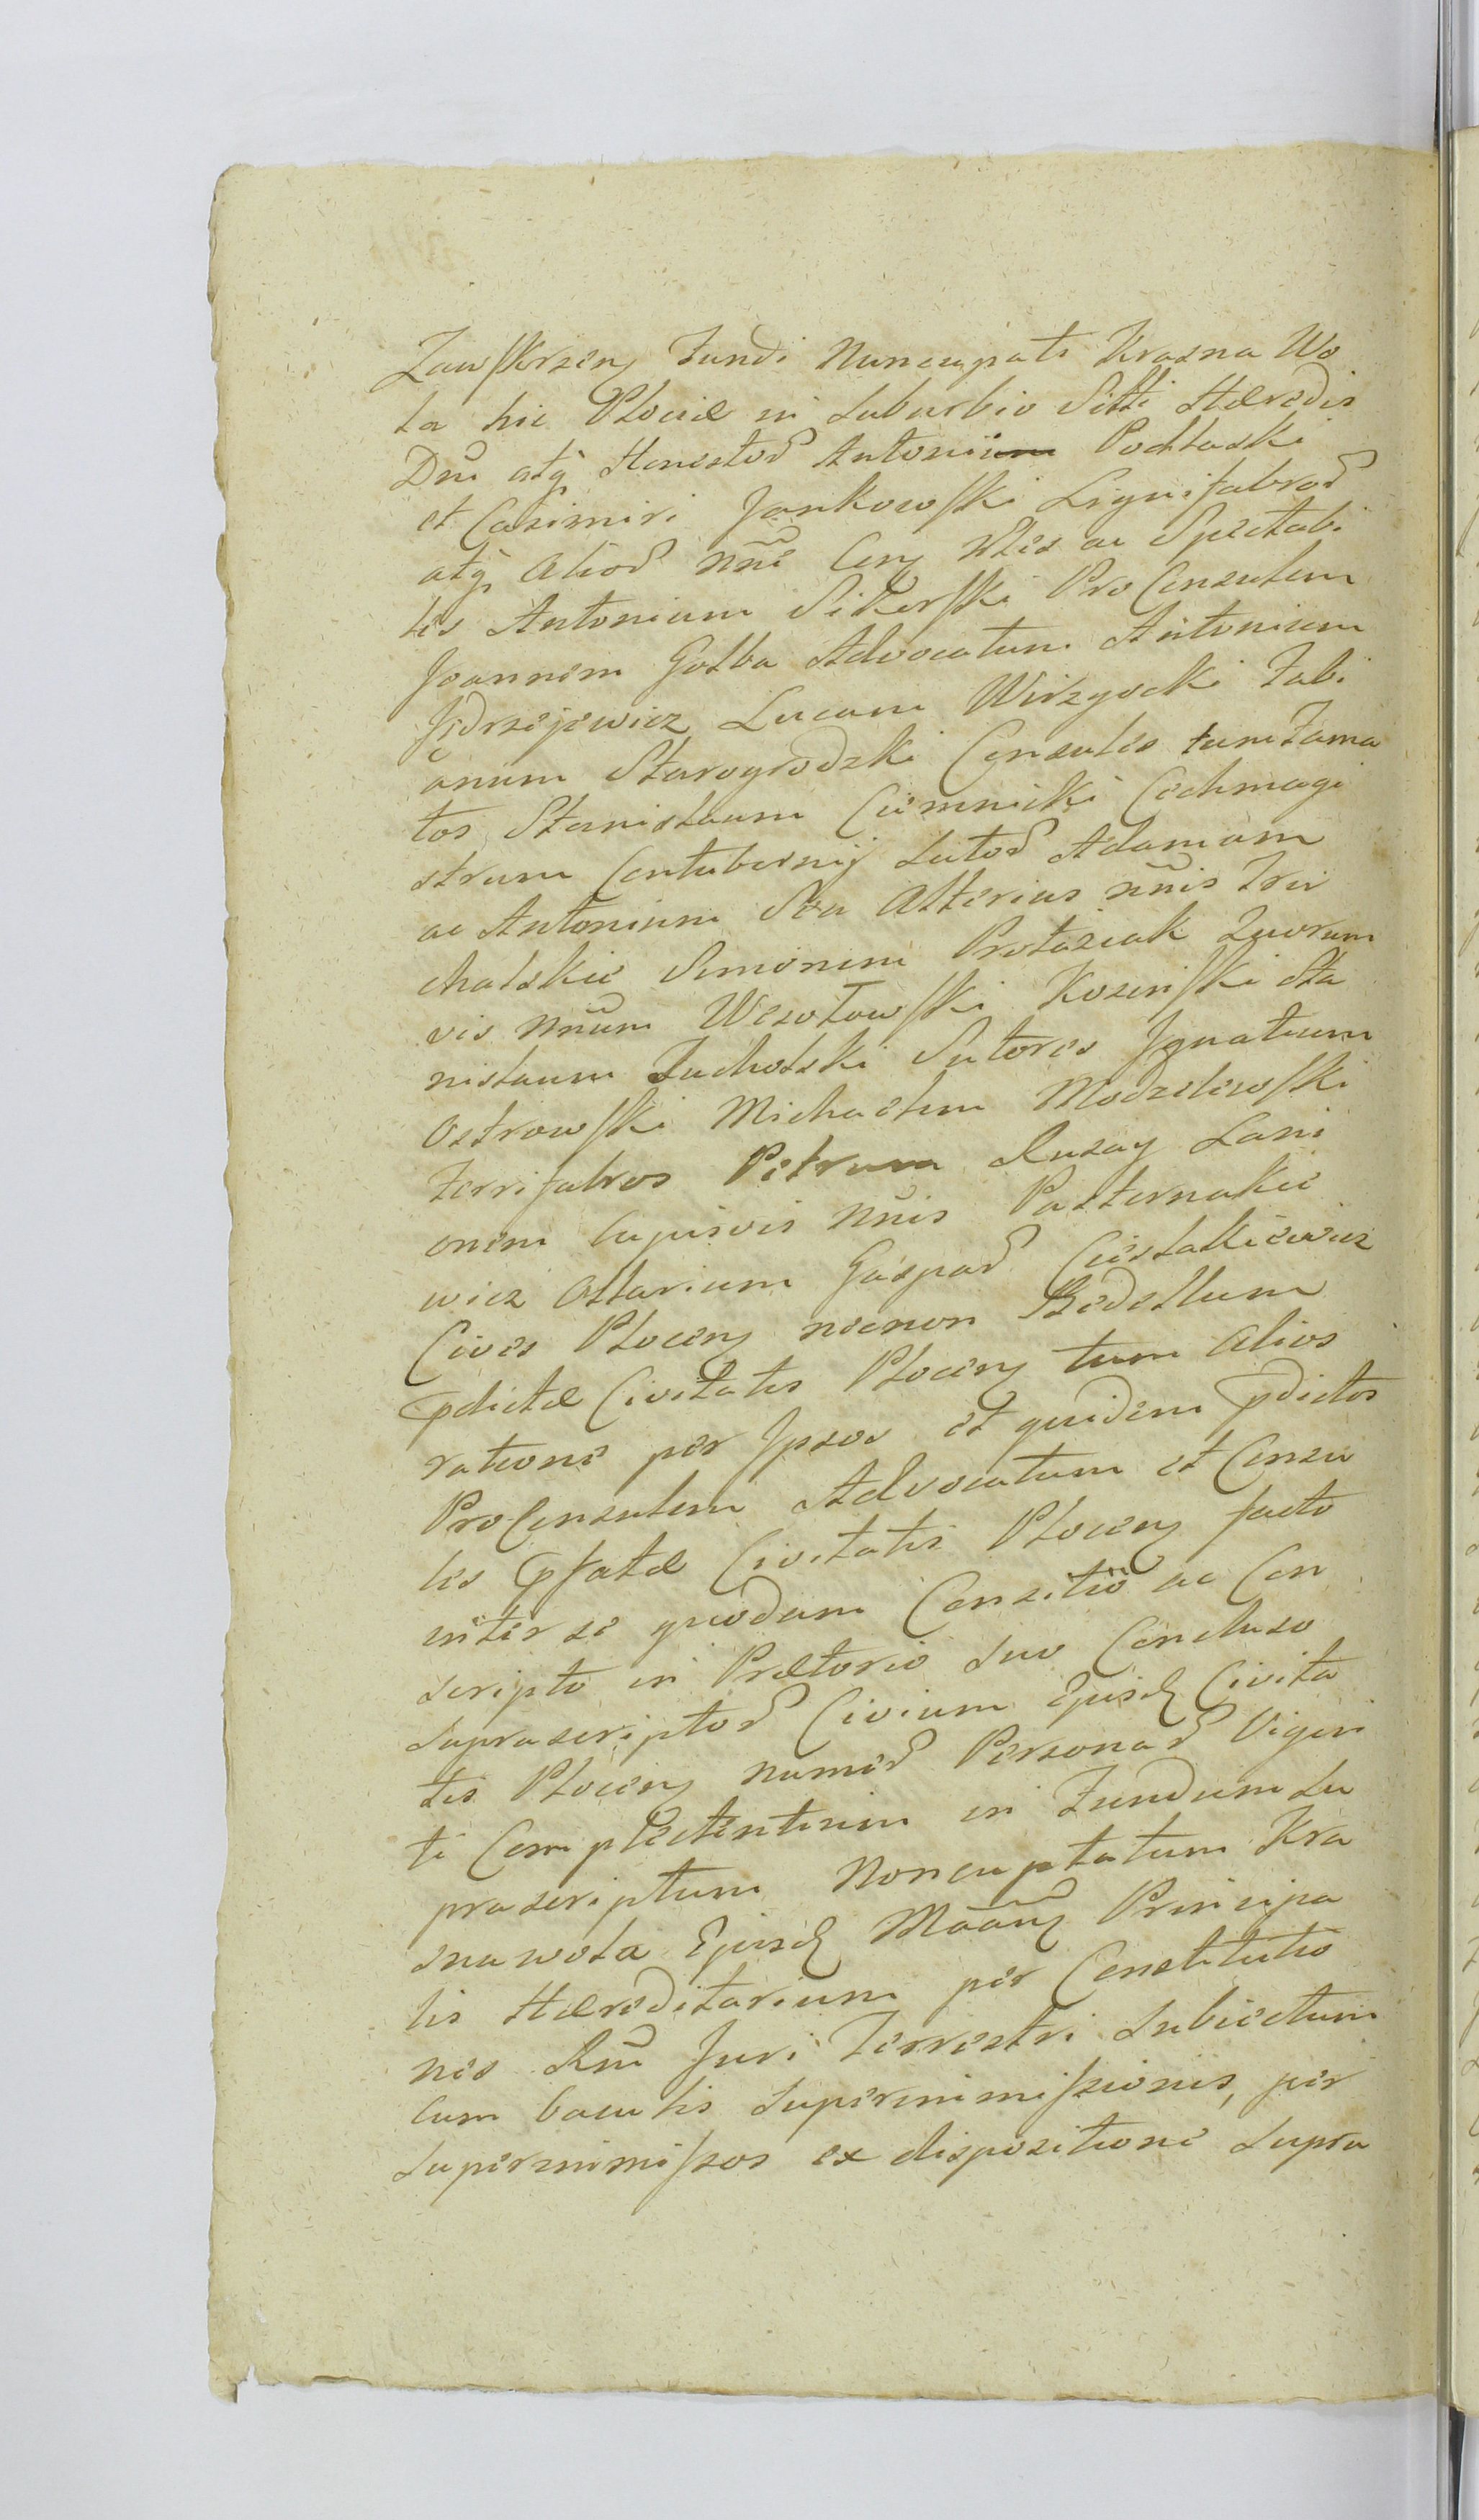 Zawskrzen Fundi Nuncupati Krasna Wo
la hic Plociæ in Suburbio Sitti Hæredis
Dni atq Honestor Antonii Podlaski
et Casimiri Jankowski Lignifabror
atq alior nni Cen Nles ac Spectabi
les Antonium Sikorski ProConsulem
Joannem Golba Advocatum Antonium
Jędrzejewicz Lucam Wirzycki Fabi
anum Starogrodzki Consules tum Fama
tos Stanislaum Ciemnicki Cechmagi
strum Contubernij Sutor Adamum
ac Antonium Seu Alterius nnis Tru
chalskie Simonem Protaziak Quorum
vis nnum Wesołowski Kosinski Sta
nislaum Zucholski Sutores Ignatium
Ostrowski Michaelem Modzelewski
Ferrifabros Petrum Ruzay Lani
onem Cujusvis nnis Pasternakie
wicz Ollarium Gaspar Cieslakiewicz
Cives Plocen necnon Bedellum
pdictæ Civitatis Plocen tum Alios
ratione per Ipsos et quidem pdictos
ProConsulem Advocatum et Consu
les pfatæ Civitatis Plocen facto
inter se quodam Consilio ac Con
scripto in Prætorio suo Concluso
suprascriptor Civium Ejusd Civita
tis Plocen numer Personar Vigin
ti Complectentium in Fundum Su
prascriptum Noncuptatum Kra
snawola Ejusd Principa
lis Hæreditarium per Constitutio
nes Rni Juri Terrestri Subiectum
cum baculis Superinmissionis, per
Superinmissos ex dispositione Supra